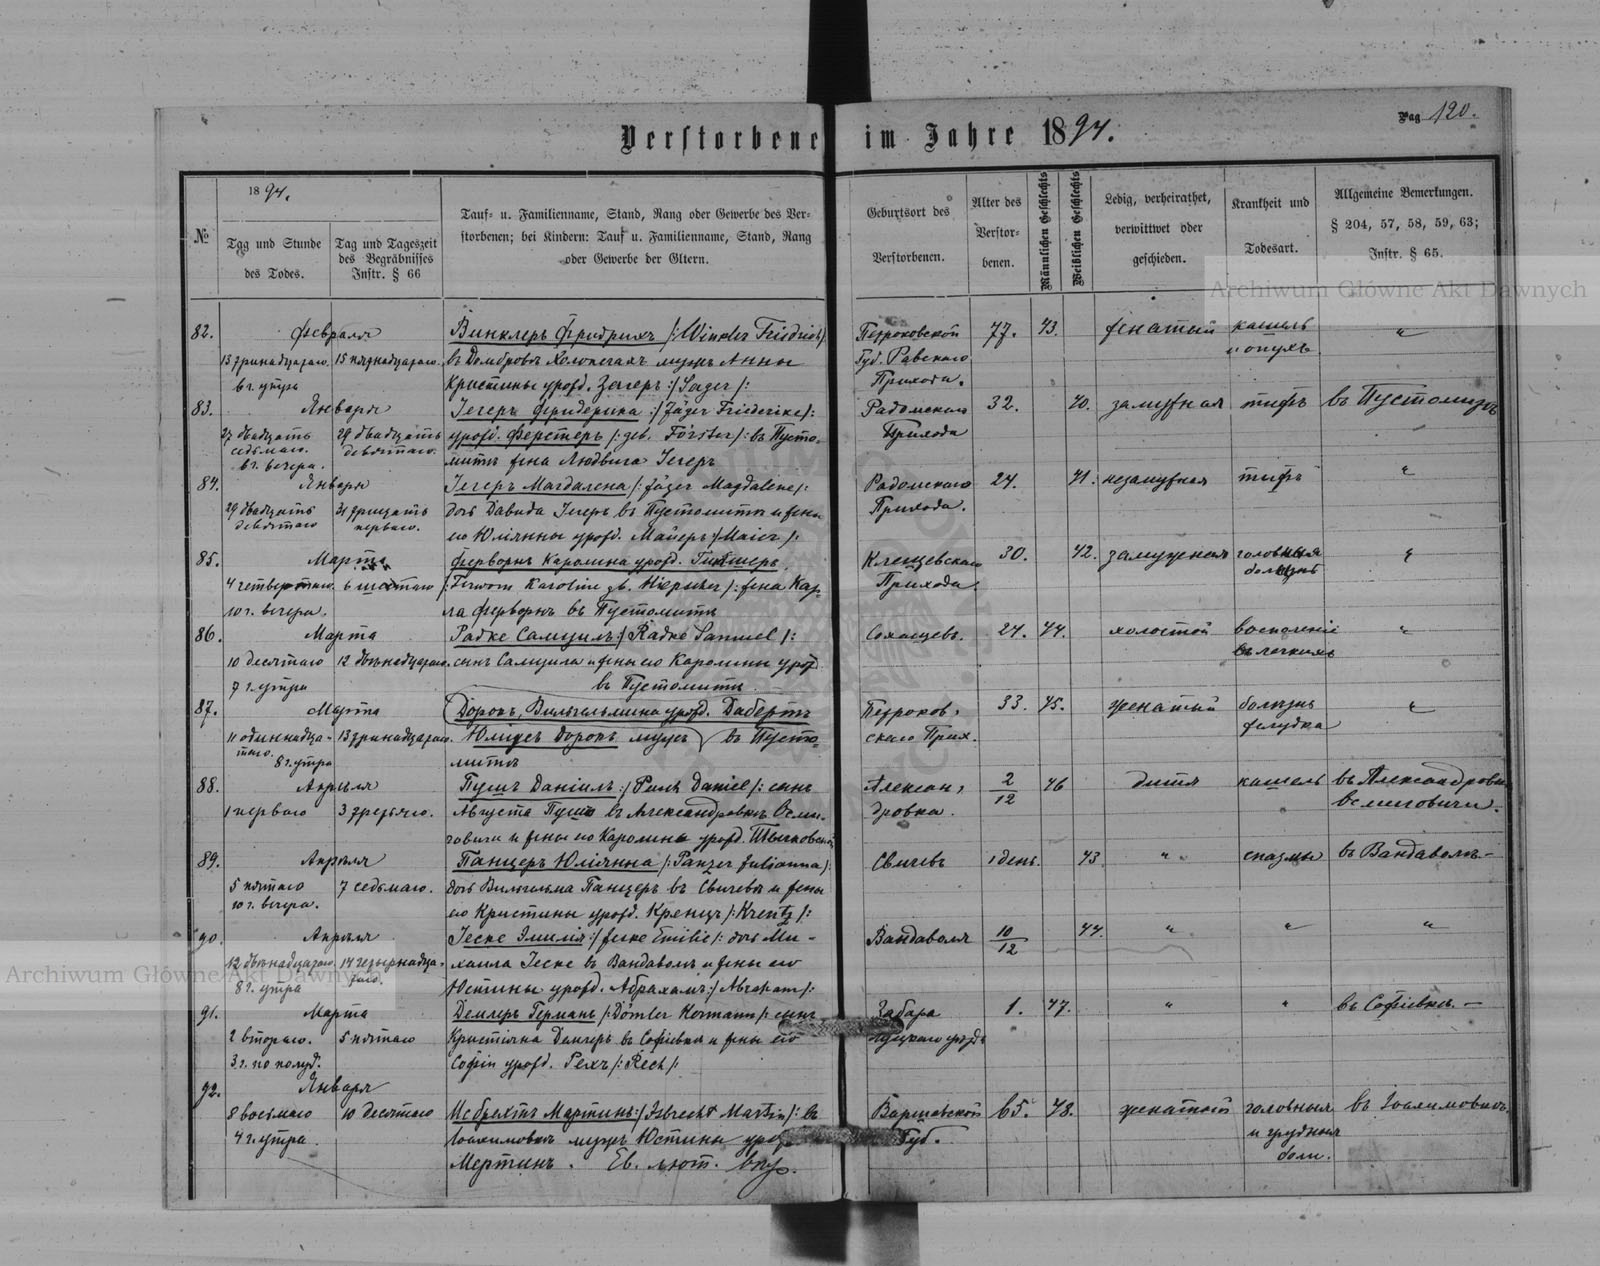 Pag 120.
Verstorbene im Jahre 1894.
№
1894.
Tag und Stunde
des Todes.
Tag und Tageszeit
des Begräbnisses
Instr. § 66
Tauf= u. Familienname, Stand, Rang oder Gewerbe des Ver=
storbenen; bei Kindern: Tauf u. Familienname, Stand, Rang
oder Gewerbe der Eltern.
Geburtsort des
Verstorbenen.
Alter des
Verstor=
benen.
Männlichen Geschlechts
Weiblichen Geschlechts
Ledig, verheirathet,
verwittwet oder
geschieden.
Krankheit und
Todesart.
Allgemeine Bemerkungen.
§ 204, 57, 58, 59, 63;
Instr. § 65.
Archiwum Główne Akt Dawnych
82. Февраля Винклеръ Фридрихъ /: Winkler Friedrich /: Петроковской 77. 43. женатый кашель "
13 тринадцатаго. 15 пятнадцатаго. въ Домбровкѣ Холопечахъ мужъ Анны Губ. Равскаго и опухъ.
6 г. утра Кристины урожд. Загеръ :/ Sager /: Прихода.
83. Января Іегеръ Фридерика :/ Jäger Friederike /: Радомскаго 32. 40. замужная тифъ въ Пустомитѣ
27 двадцать 29 двадцать урожд. Ферстеръ /: geb. Förster /: въ Пусто- Прихода
седьмаго. девятаго.
6 г. вечера. митѣ жена Людвига Іегеръ
84. Января Іегеръ Магдалена /: Jäger Magdalene /: Радомскаго 24. 41. незамужная тифъ "
29 двадцать 31 тридцать дочь Давида Іегеръ въ Пустомитѣ и жены Прихода.
девятаго перваго. его Юліянны урожд. Майеръ :/ Maier /:
85. Марта Ферворнъ Каролина урожд. Клещевскаго 30. 42. замужная головная "
4 четвертаго. 6 шестаго /: Ferworn Karoline /: жена Кар- Прихода. болѣзнь
10 г. вечера. ла Ферворнъ въ Пустомитѣ
86. Марта Радке Самуилъ :/ Radke Samuel /: Сохачевъ. 24. 44. холостой воспаленіе "
10 десятаго 12 двѣнадцатаго. сынъ Самуила и жены его Каролины урожд. въ легкихъ
7 г. утра въ Пустомитѣ
87. Марта Доронъ, Вильгельмина урожд. Дабертъ Петроков- 33. 45. женатый болѣзнь "
11 одиннадца- 13 тринадцатаго. Юліусъ Доронъ мужъ въ Пусто- скаго Прих. желудка
таго. 8 г. утра митѣ
88. Апрѣля Пушъ Даніилъ :/ Daniel /: сынъ Алексан- 2/12 46 дитя кашель въ Александровкѣ
1 перваго 3 третьяго. Августа Пушъ въ Александровкѣ Осми- дровка. Осмиговичи.
говичи и жены его Каролины урожд.
89. Апрѣля Панцеръ Юліянна /: Panzer Julianna /: Свичевъ 1 день. 43 " спазмы въ Вандаволѣ –
5 пятаго 7 седьмаго. дочь Вильгельма Панцеръ въ Свичевѣ и жены
10 г. вечера. его Кристины урожд. Кренцъ /: Krentz /:
90. Апрѣля Іеске Эмилія :/ Jeske Emilie /: дочь Ми- Вандаволя 10/12 44. " " "
12 двѣнадцатаго 14 четырнадца- хаила Іеске въ Вандаволѣ и жены его
таго.
8 г. утра Юстины урожд. Абрахамъ :/ Abraham /:
Archiwum Główne Akt Dawnych
91. Марта Демлеръ Германъ /: Dömler Hermann /: сынъ Забара 1. 47. " " въ Софіевкѣ. –
2 втораго. 5 пятаго Кристіяна Демлеръ въ Софіевкѣ и жены его Луцкаго уѣзда
3 г. по полуд. Софіи урожд. Рехъ /: Rech /:
92. Января
8 восьмаго 10 десятаго Исбрехтъ Мартинъ :/ Isbrecht Martin /: въ Варшавской 65. 48. женатый головныя въ Іоахимовкѣ.
4 г. утра. Іоахимовкѣ мужъ Юстины урожд. Губ. и грудныя
Мертинъ. Ев. лют. боли.